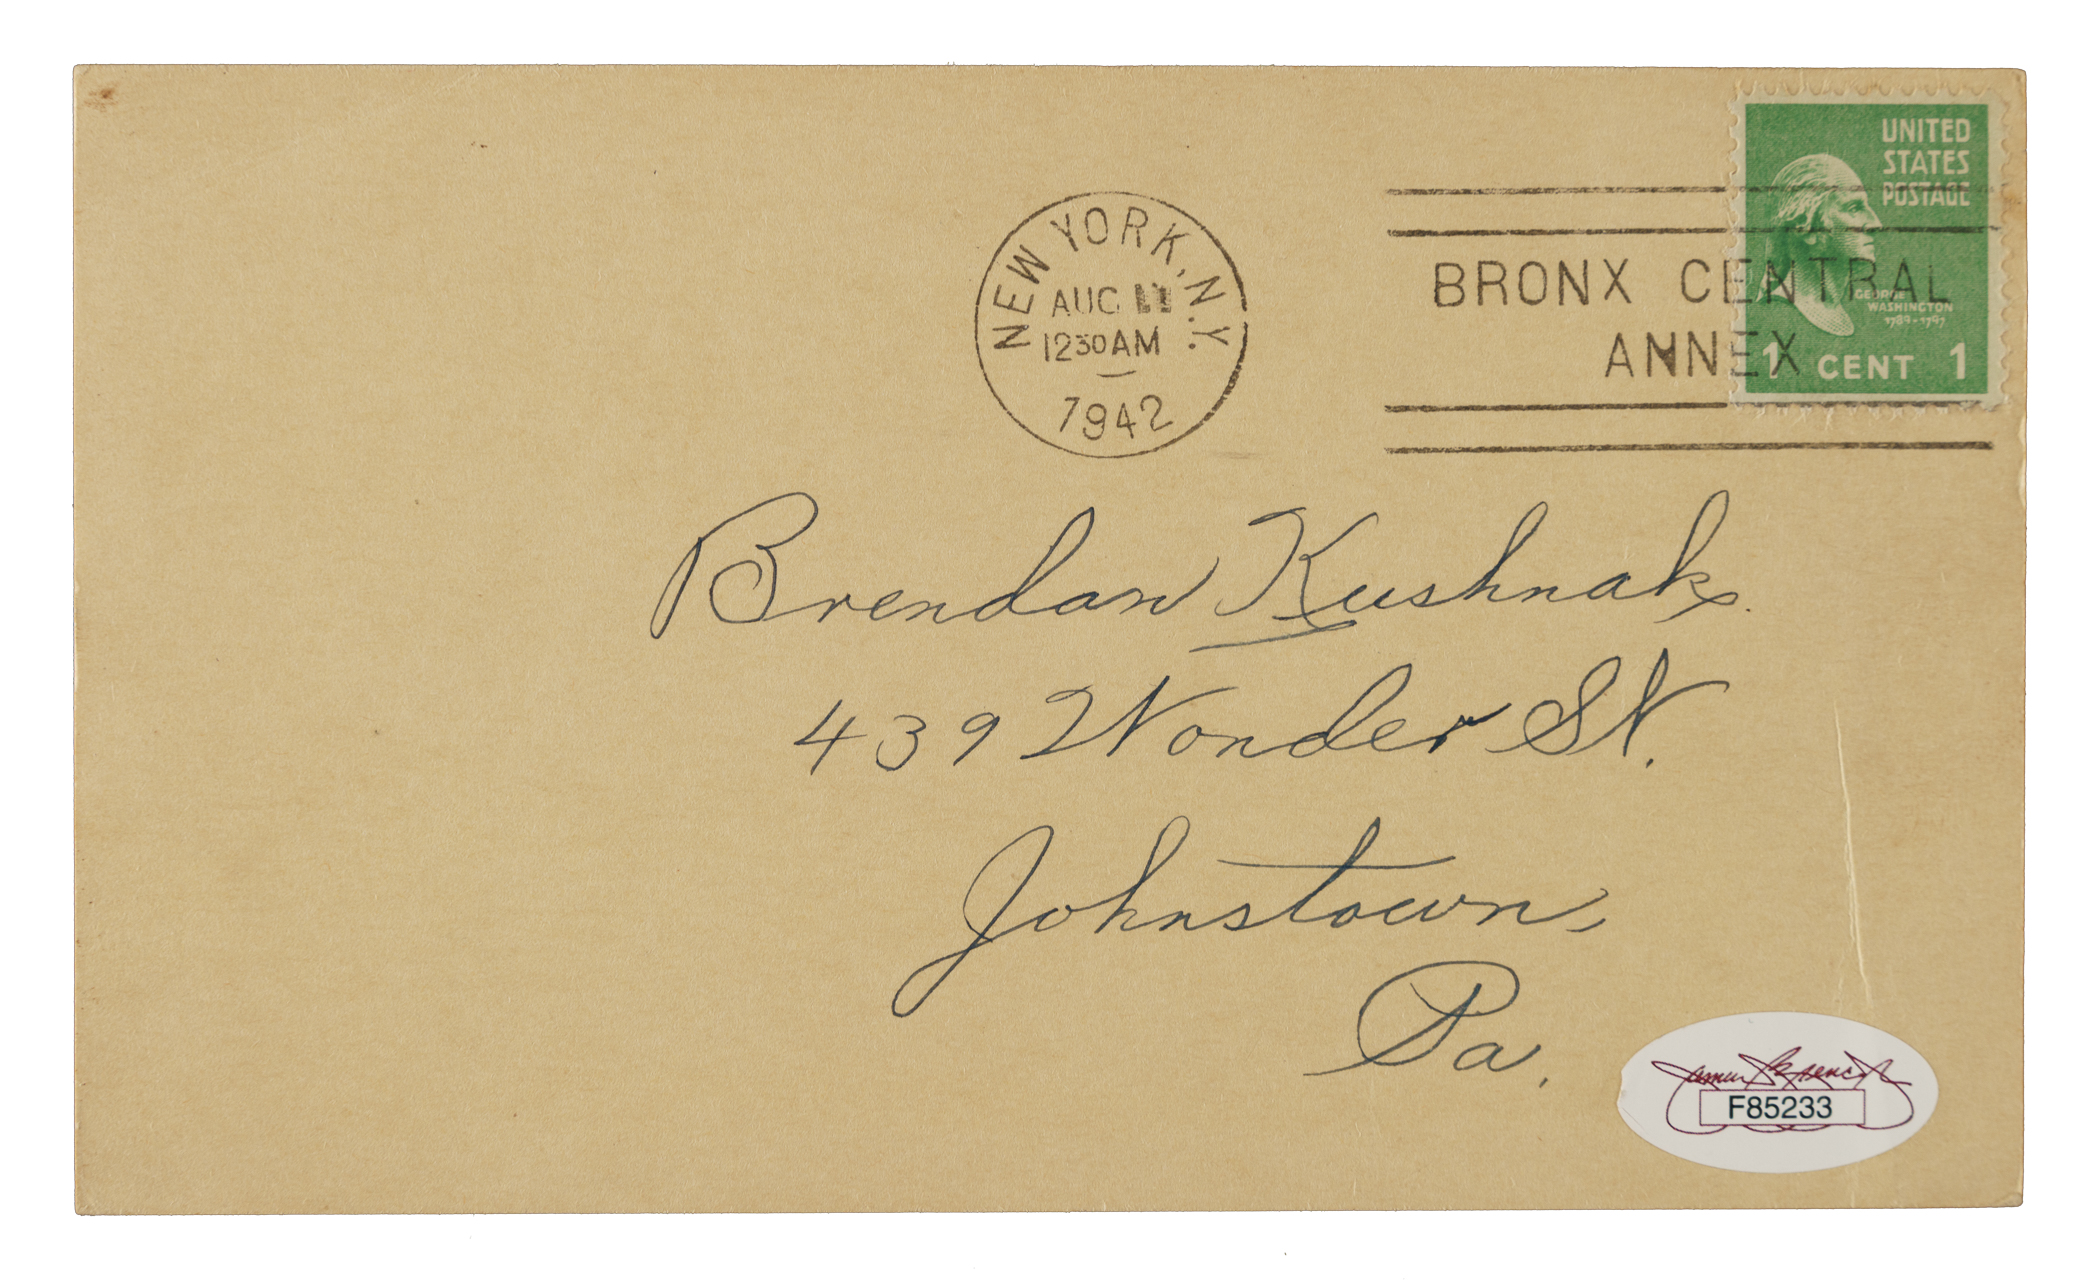 NEW YORK, N.Y.
AUG 11
1230 AM
1942
BRONX CENTRAL
ANNEX
UNITED
STATES
POSTAGE
GEORGE
WASHINGTON
1789-1797
1 CENT 1
Brendan Kushnak
439 Wonder St.
Johnstown,
Pa.
James Spence Jr
F85233